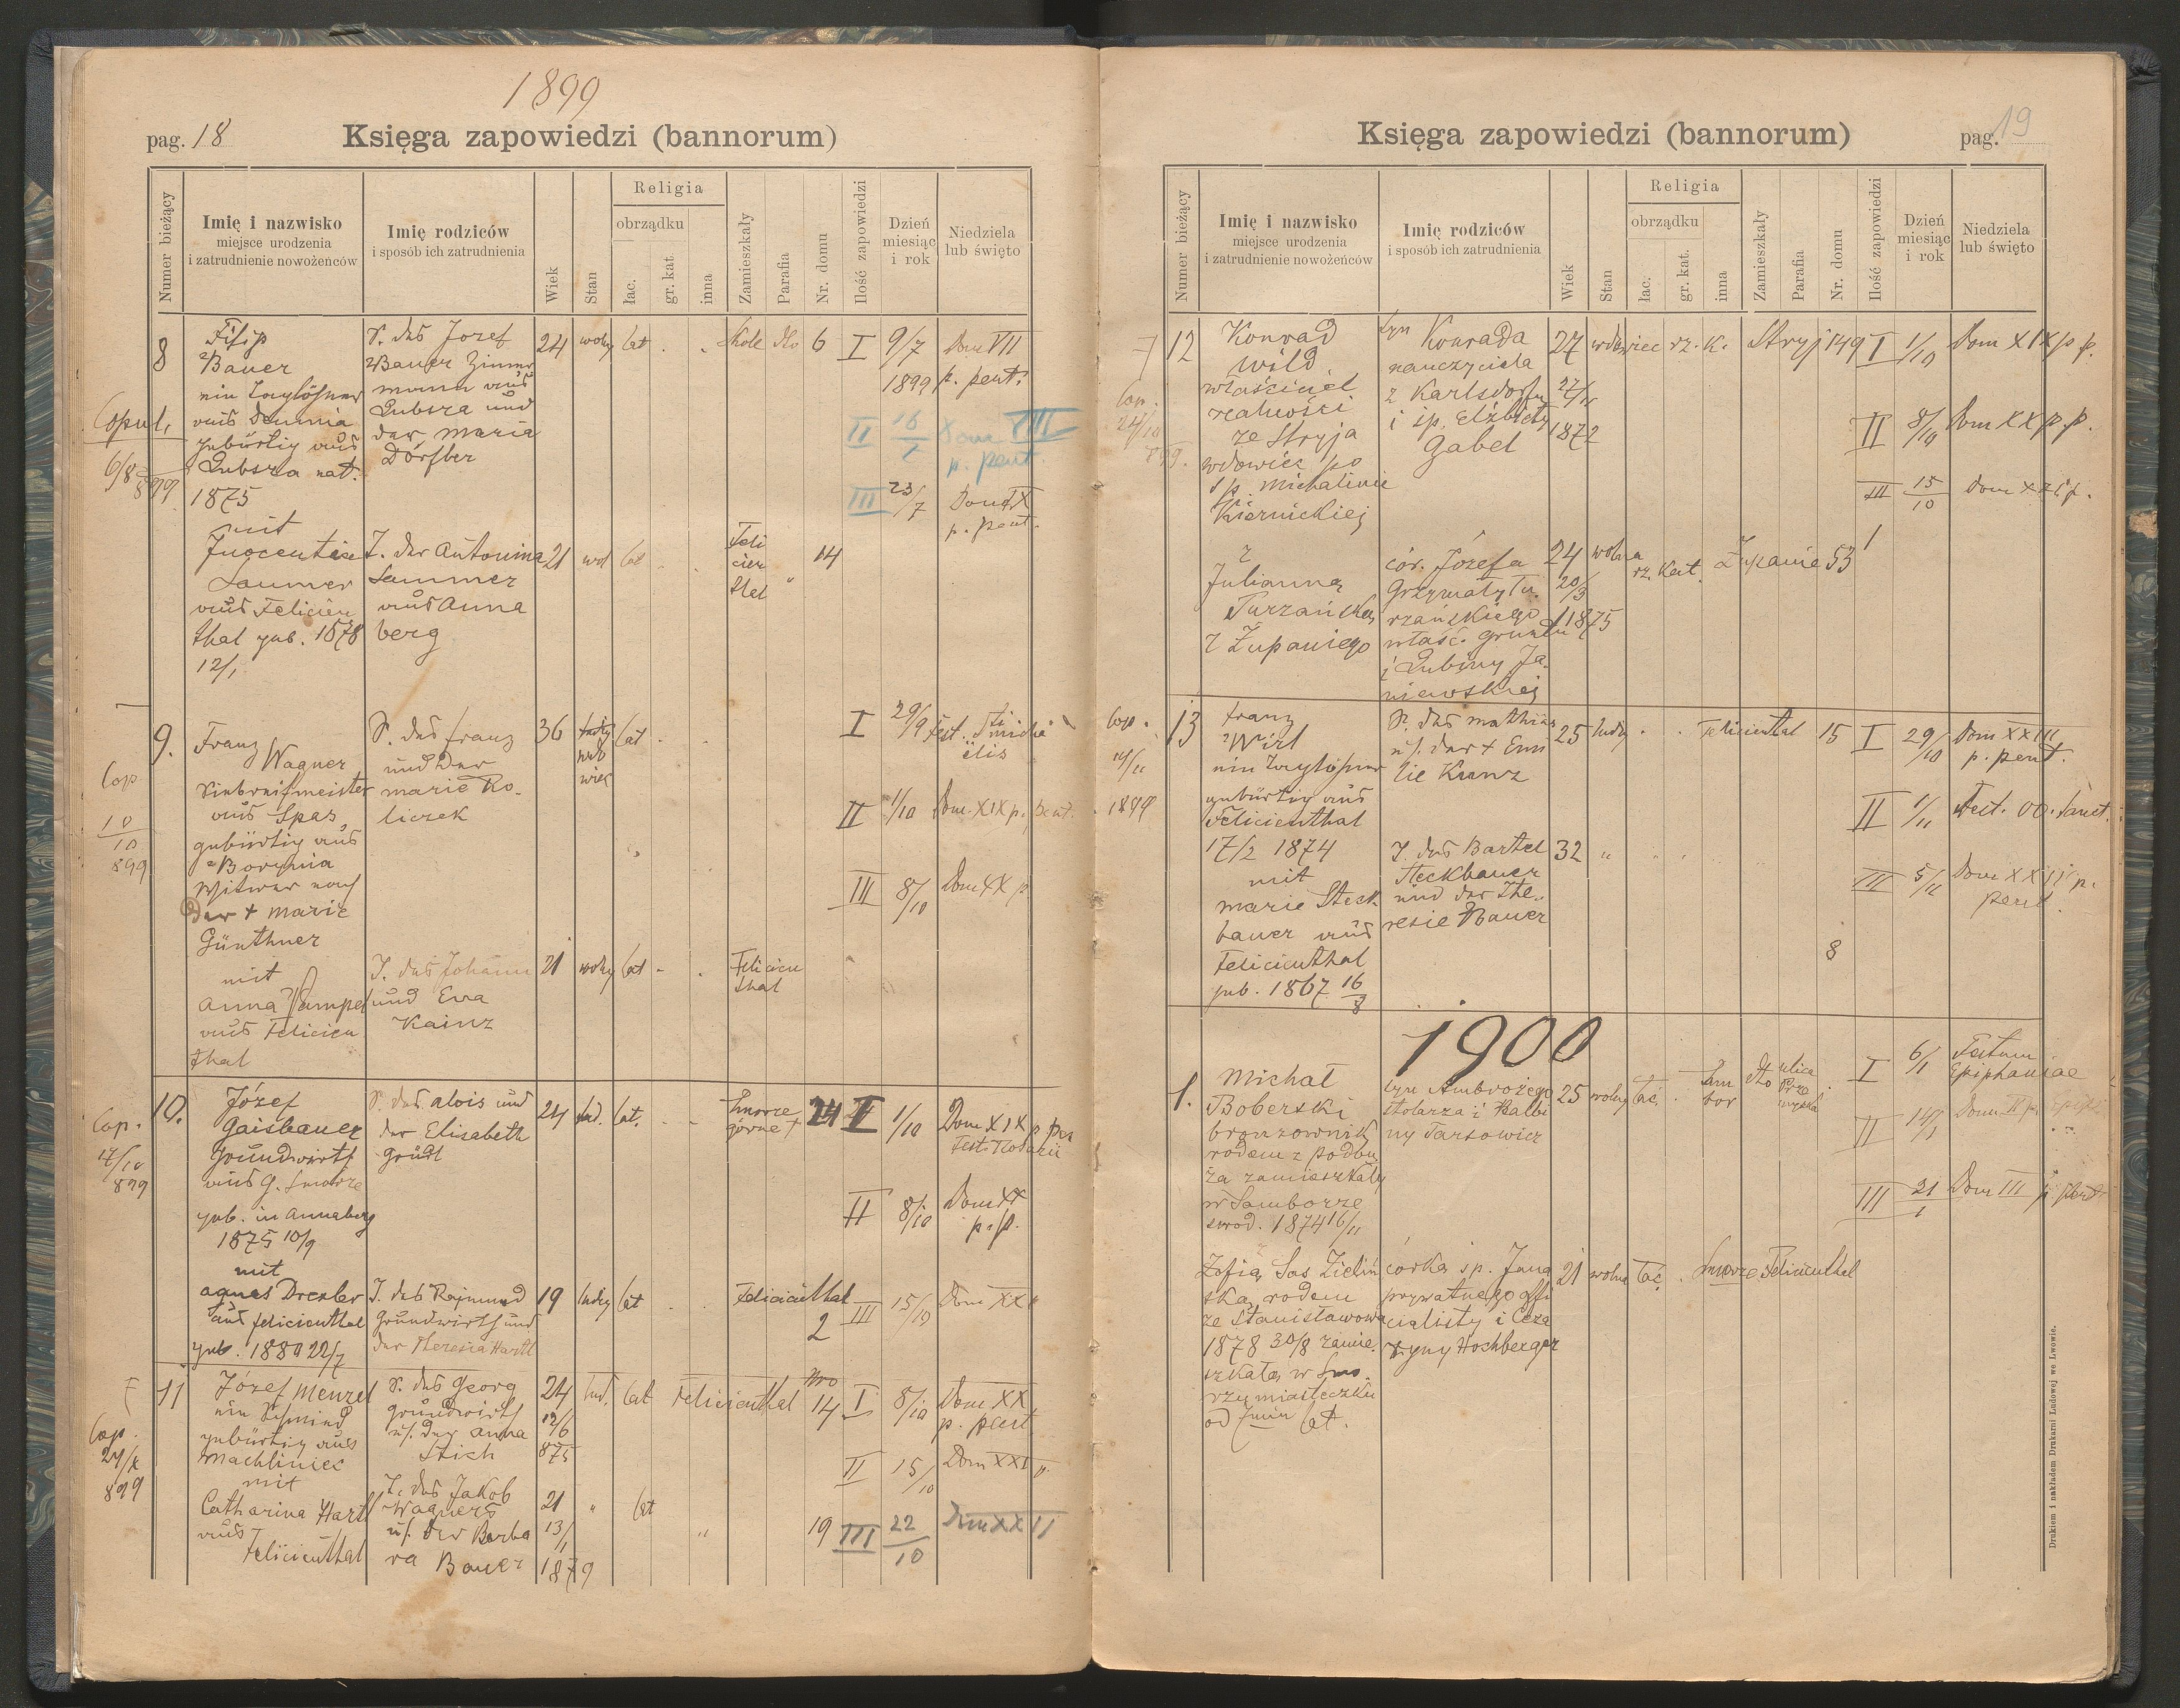 1899
pag. 18
Księga zapowiedzi (bannorum)
Numer bieżący
Imię i nazwisko
miejsce urodzenia
i zatrudnienie nowożeńców
Imię rodziców
i sposób ich zatrudnienia
Wiek
Stan
Religia
obrządku
łac.
gr. kat.
inna
Zamieszkały
Parafia
Nr. domu
Ilość zapowiedzi
Dzień
miesiąc
i rok
Niedziela
lub święto
8
Filip
Bauer
ein Taglöhner
aus Demnia
gebürtig aus
Lubsza nat.
1875
mit
Inocentia
Laumer
aus Felicien
thal geb. 1878
12/1
S. des Jozef
Bauer Zimmer
mann aus
Lubsza und
der Maria
Dörfler
24 wolny lat
Skole dto 6 I 9/7 Dom VII
1899 p. pent.
II 16/7 Dom VIII
p. pent.
III 23/7 Dom IX
p. pent.
Copul.
6/8 899
T. der Antonina
Laumer
aus Anna
berg
21 wol lat
Feli
cien
thal
14
9.
Franz
Wagner
aus Spas
gebürtig aus
Borynia
Witwer nach
der + Marie
Günthner
mit
Anna Pampel
aus Felicien
thal
S. des Franz
und der
Marie Ro-
liczek
36
wdo
wiec
lat
I 29/9 Fest. Sti Micha
ëlis
II 1/10 Dom. XIX p. pent.
III 8/10 Dom XX p
Cop
10/10
899
T. des Johann
und Eva
Kainz
21 wolny lat
Felicien
thal
10.
Józef
Gaisbauer
Grundwirth
aus G. Smorze
geb. in Annaberg
1875 10/9
mit
Agnes Drexler
aus Felicienthal
geb. 1880 22/7
S. des Alois und
der Elisabeth
Gründl
24 led. lat.
Smorze
górne
24 I 1/10 Dom XIX p. pen
Fest. Rosarii
II 8/10 Dom XX
p. p.
Cop.
17/10
899
T. des Rajmund
Grundwirth und
der Theresia Hartl
19 ledig lat
Felicienthal
2
III 15/10 Dom XXI
11
Józef Menzel
ein Schmied
gebürtig aus
Machliniec
mit
Catharina Hartl
aus
Felicienthal
S. des Georg
Grundwirth
u. der Anna
Stich
24 led. lat Felicienthal
12/6
875
Nro
14 I 8/10 Dom XX
p. pent.
II 15/10 Dom XXI p.
Cop.
24/X
899
T. des Jakob
Wagners
u. der Barba
ra Bauer
21 " lat
13/1
1879
19 III 22/10 Dom XXII
pag. 19
Księga zapowiedzi (bannorum)
Numer bieżący
Imię i nazwisko
miejsce urodzenia
i zatrudnienie nowożeńców
Imię rodziców
i sposób ich zatrudnienia
Wiek
Stan
Religia
obrządku
łac.
gr. kat.
inna
Zamieszkały
Parafia
Nr. domu
Ilość zapowiedzi
Dzień
miesiąc
i rok
Niedziela
lub święto
12
Konrad
Wild
właściciel
realności
ze Stryja
wdowiec po
ś.p. Michalinie
Kiernickiej
z
Julianną
Turzańską
z Żupaniego
syn Konrada
nauczyciela
z Karlsdorfu
i śp. Elżbiety
Gabel
27 wdowiec rz. k. Stryj 149 I 1/10 Dom XIX p p.
27/11
1872
II 8/10 Dom XX p. p.
III 15/10 Dom XXI p.
Cop.
24/10
899.
cór. Józefa
Grzymały Tu-
rzańskiego
właśc. gruntu
i Lubiny Ja-
niewskiej
24 wolna
rz. kat. Żupanie 53
20/3
1875
13
Franz
Wirl
ein Taglöhner
gebürtig aus
Felicienthal
17/2 1874
mit
Marie Steck-
bauer aus
Felicienthal
geb. 1867 16/8
S. des Mathias
u. der + Emi
lie Kunz
25 ledig
Felicienthal 15 I 29/10 Dom XXIII
p. pent.
II 1/11 Fest. OO. Sanct.
III 5/11 Dom XXIV p.
pent.
Cop.
14/11
1899
T. des Bartel
Steckbauer
und der The-
resie Bauer
32 "
8
1900
1.
Michał
Boberski
bronzownik
rodem z Podbu
ża zamieszkały
w Samborze
urod. 1874 16/11
Zofią Sas Zieliń
ską rodem
ze Stanisławowa
1878 30/8 zamie-
szkałą w Smo-
rzu miasteczku
od lat.
syn Ambrożego
stolarza i Balbi
ny Tarsowicz
25 wolny łać.
Sam
bor
dto
ulica
I 6/1 Festum
Epiphaniae
II 14/1 Dom II p. Epiph.
III 21/1 Dom III p.
córką śp. Jana
prywatnego offi
cialisty i Ceza
ryny Hochberger
21 wolna łać. Smorze Felicienthal
Drukiem i nakładem Drukarni Ludowej we Lwowie.